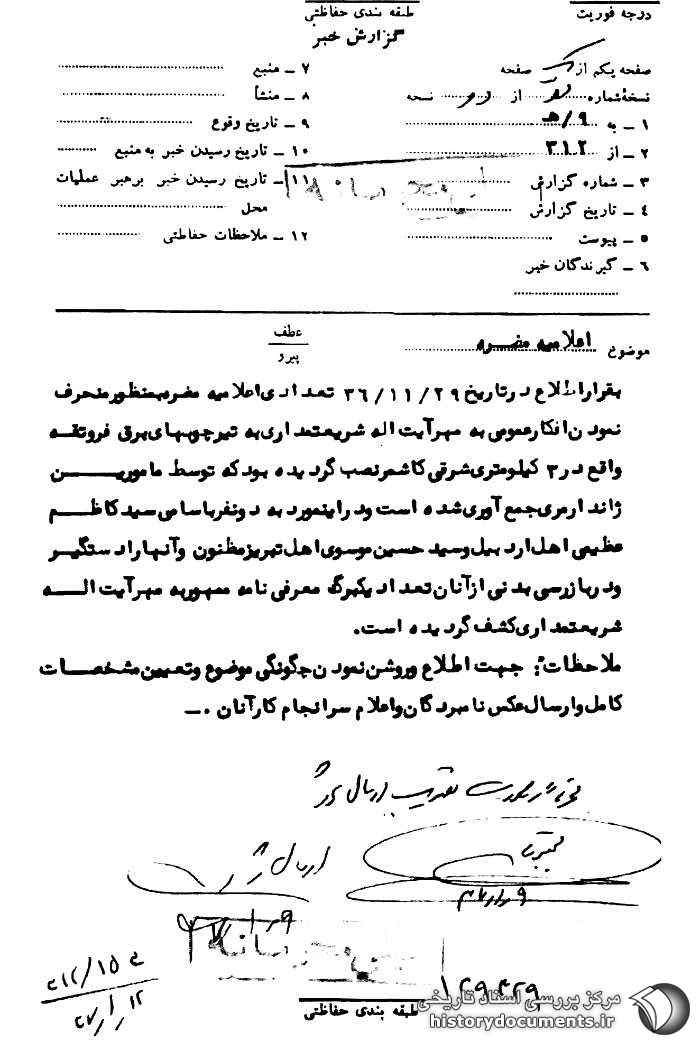 درجه فوریت
طبقه بندی حفاظتی
گزارش خبر
صفحه یکم از صفحه
نسخهٔ شماره از نسخه
۱ ـ به ۹/هـ
۲ ـ از ۳۱۲
۳ ـ شماره گزارش
۴ ـ تاریخ گزارش
۵ ـ پیوست
۶ ـ گیرندگان خبر
۷ ـ منبع
۸ ـ منشأ
۹ ـ تاریخ وقوع
۱۰ ـ تاریخ رسیدن خبر به منبع
۱۱ ـ تاریخ رسیدن خبر برهبر عملیات
محل
۱۲ ـ ملاحظات حفاظتی
موضوع اعلامیه مضره
عطف
پیرو
بقرار اطلاع در تاریخ ۳۶/۱۱/۲۹ تعدادی اعلامیه مضره بمنظور منحرف
نمودن افکار عمومی به مهر آیت اله شریعتمداری به تیر چوبهای برق فروتقه
واقع در ۳ کیلومتری شرقی کاشمر نصب گردیده بود که توسط مامورین
ژاندارمری جمع آوری شده است و در اینمورد به دو نفر باسامی سید کاظم
عظیمی اهل اردبیل و سید حسین موسوی اهل تبریز مظنون و آنها را دستگیر
و در بازرسی بدنی از آنان تعداد یکبرگ معرفی نامه ممهور به مهر آیت اله
شریعتمداری کشف گردیده است.
ملاحظات: جهت اطلاع و روشن نمودن چگونگی موضوع و تعیین مشخصات
کامل و ارسال عکس نامبردگان و اعلام سرانجام کار آنان .ـ
ارسال
۱۲۹۴۲۹
طبقه بندی حفاظتی
مرکز بررسی اسناد تاریخی
historydocuments.ir